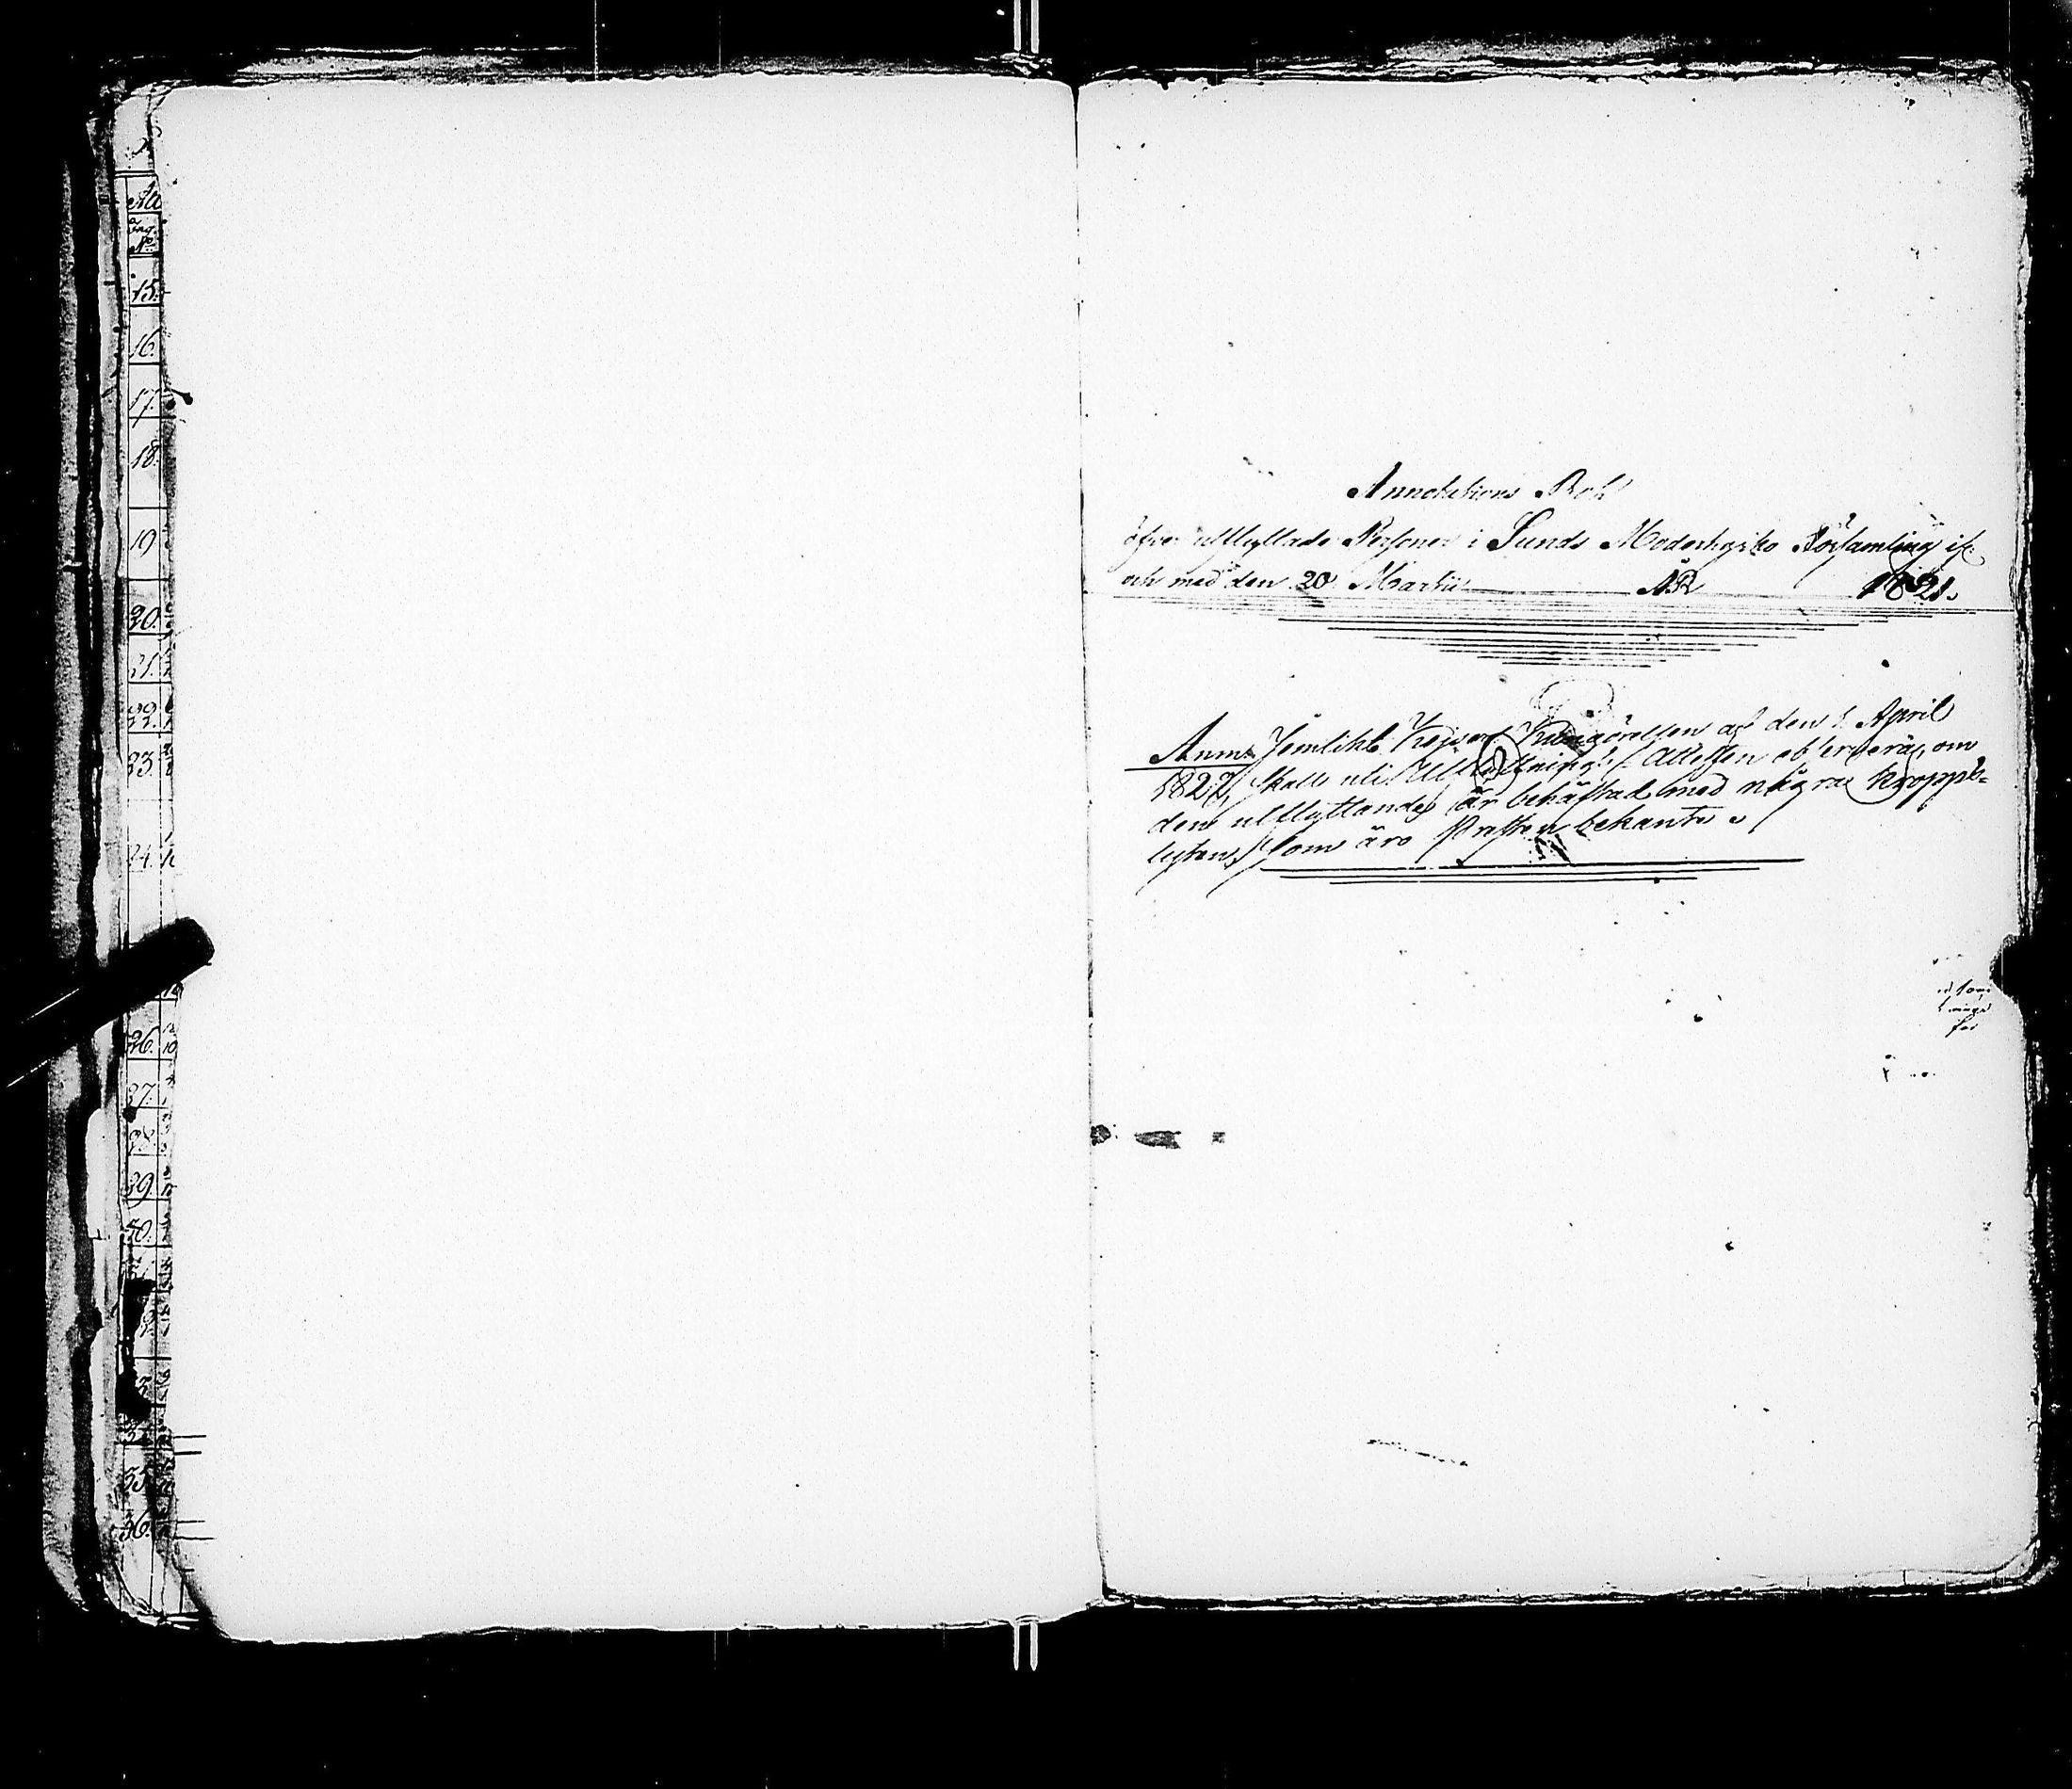 Att
N:o
15.
16.
17.
18.
19
20.
21.
22.
23.
24.
26.
27.
28.
29.
30.
35.
36.
Annotations Bok
öfver utflyttade Personer i Sunds Moderkyrko Församling if:
och med den 20 Martii ÅR 1821.
Anm. Jemlikt Kejserl Kungörelsen af den 1 April
1822, skall uti Utflyttnings Attesten observeras, om
den utflyttande är behäftad med några kropps-
lyten, som äro Presten bekante.